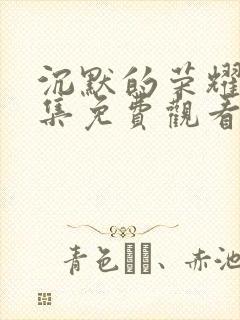 沉默的荣耀
集免費觀看
青色、赤池